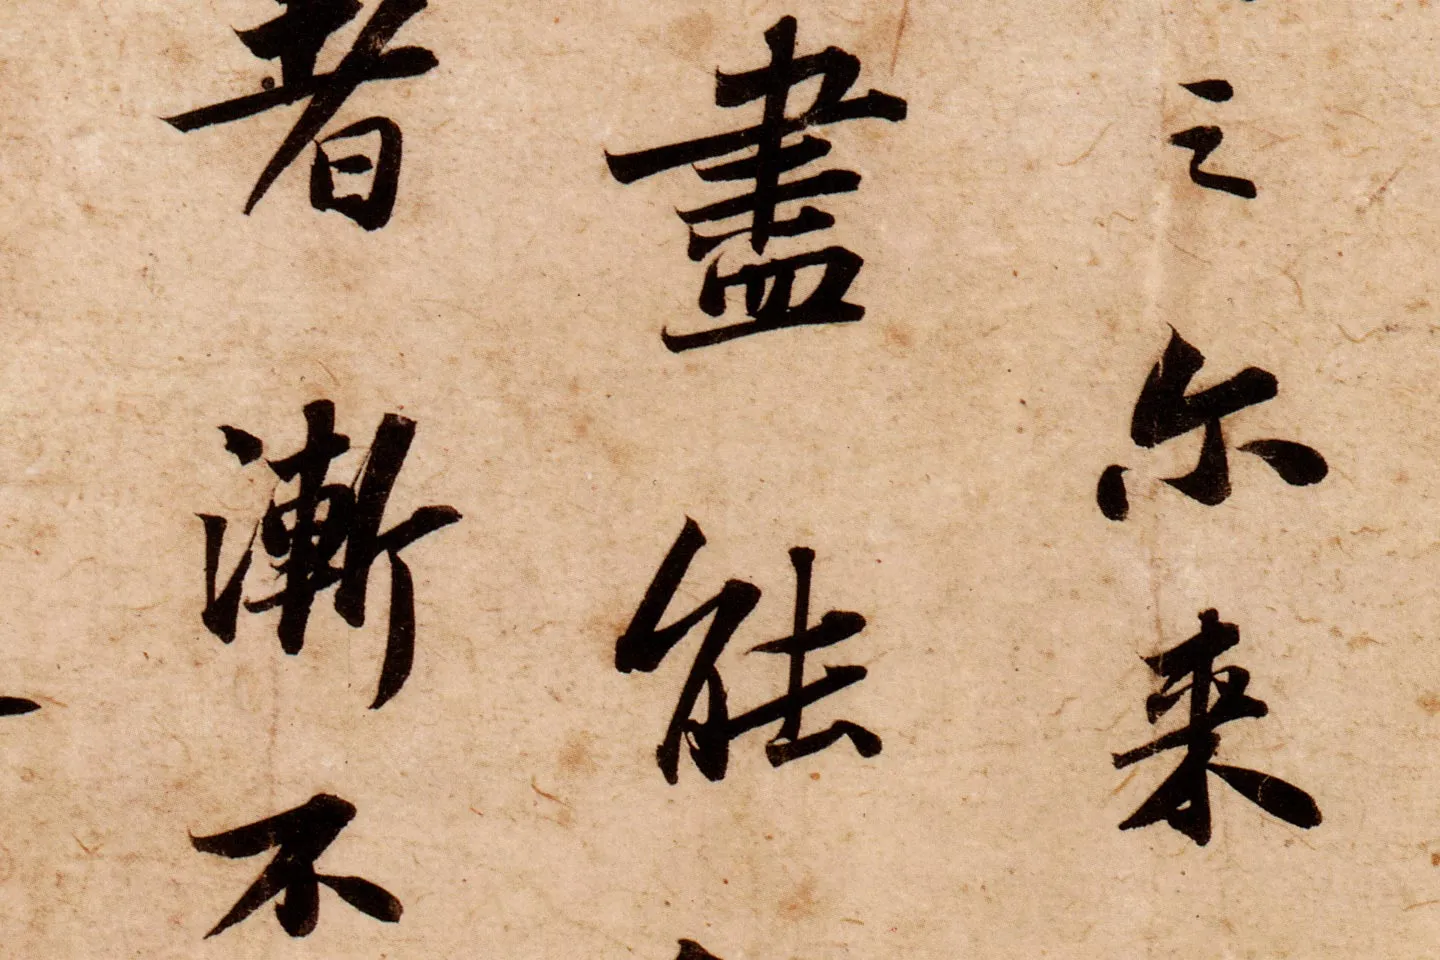 之尔来
盡能
者漸不